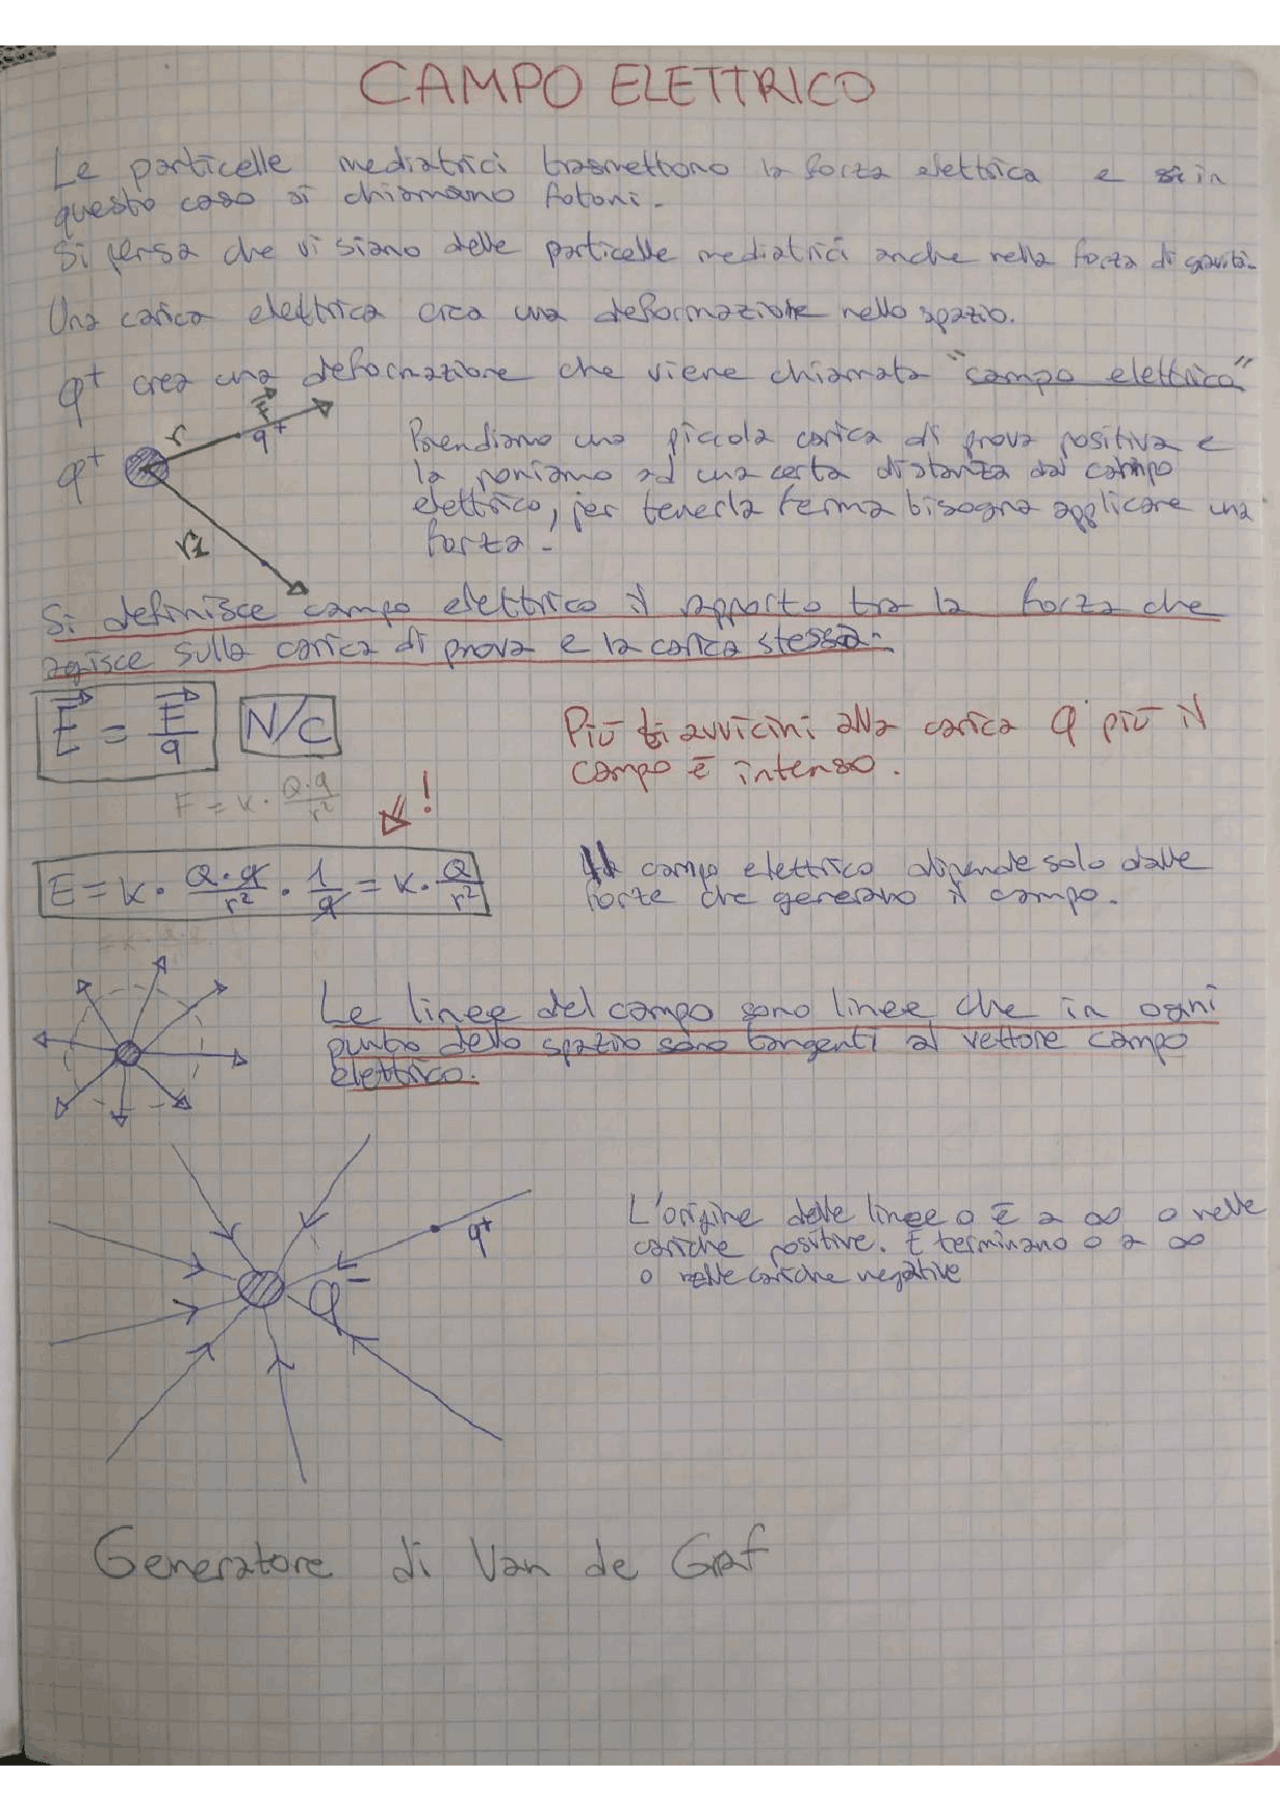 CAMPO ELETTRICO
Le particelle mediatrici trasmettono la forza elettrica e in
questo caso si chiamano fotoni.
Si pensa che vi siano delle particelle mediatrici anche nella forza di gravità.
Una carica elettrica crea una deformazione nello spazio.
Q+ crea una deformazione che viene chiamata "campo elettrico"
r F q+
Q+
r1
Prendiamo una piccola carica di prova positiva e
la poniamo ad una certa distanza dal campo
elettrico, per tenerla ferma bisogna applicare una
forza.
Si definisce campo elettrico il rapporto tra la forza che
agisce sulla carica di prova e la carica stessa.
E = F/q N/C
Più ti avvicini alla carica Q più il
campo è intenso.
F = K · Q·q/r²
!
E = K · Q·q/r² · 1/q = K · Q/r²
Il campo elettrico dipende solo dalle
forze che generano il campo.
Le linee del campo sono linee che in ogni
punto dello spazio sono tangenti al vettore campo
elettrico.
q+
Q-
L'origine delle linee o è a ∞ o nelle
cariche positive. E terminano o a ∞
o nelle cariche negative
Generatore di Van de Graf